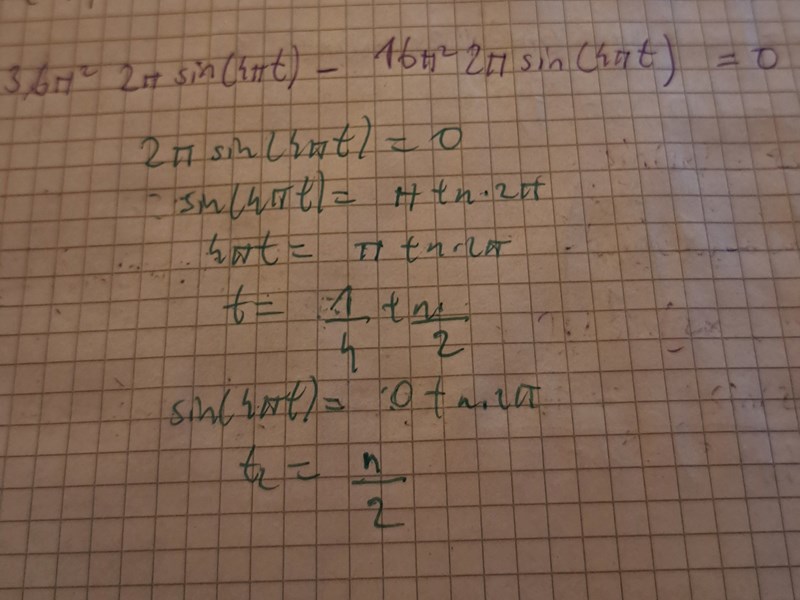 36π² 2π sin(4πt) - 16π² 2π sin(4πt) = 0
2π sin(4πt) = 0
sin(4πt) = π + n·2π
4πt = π + n·2π
t = 1/4 + n/2
sin(4πt) = 0 + n·2π
t₂ = n/2